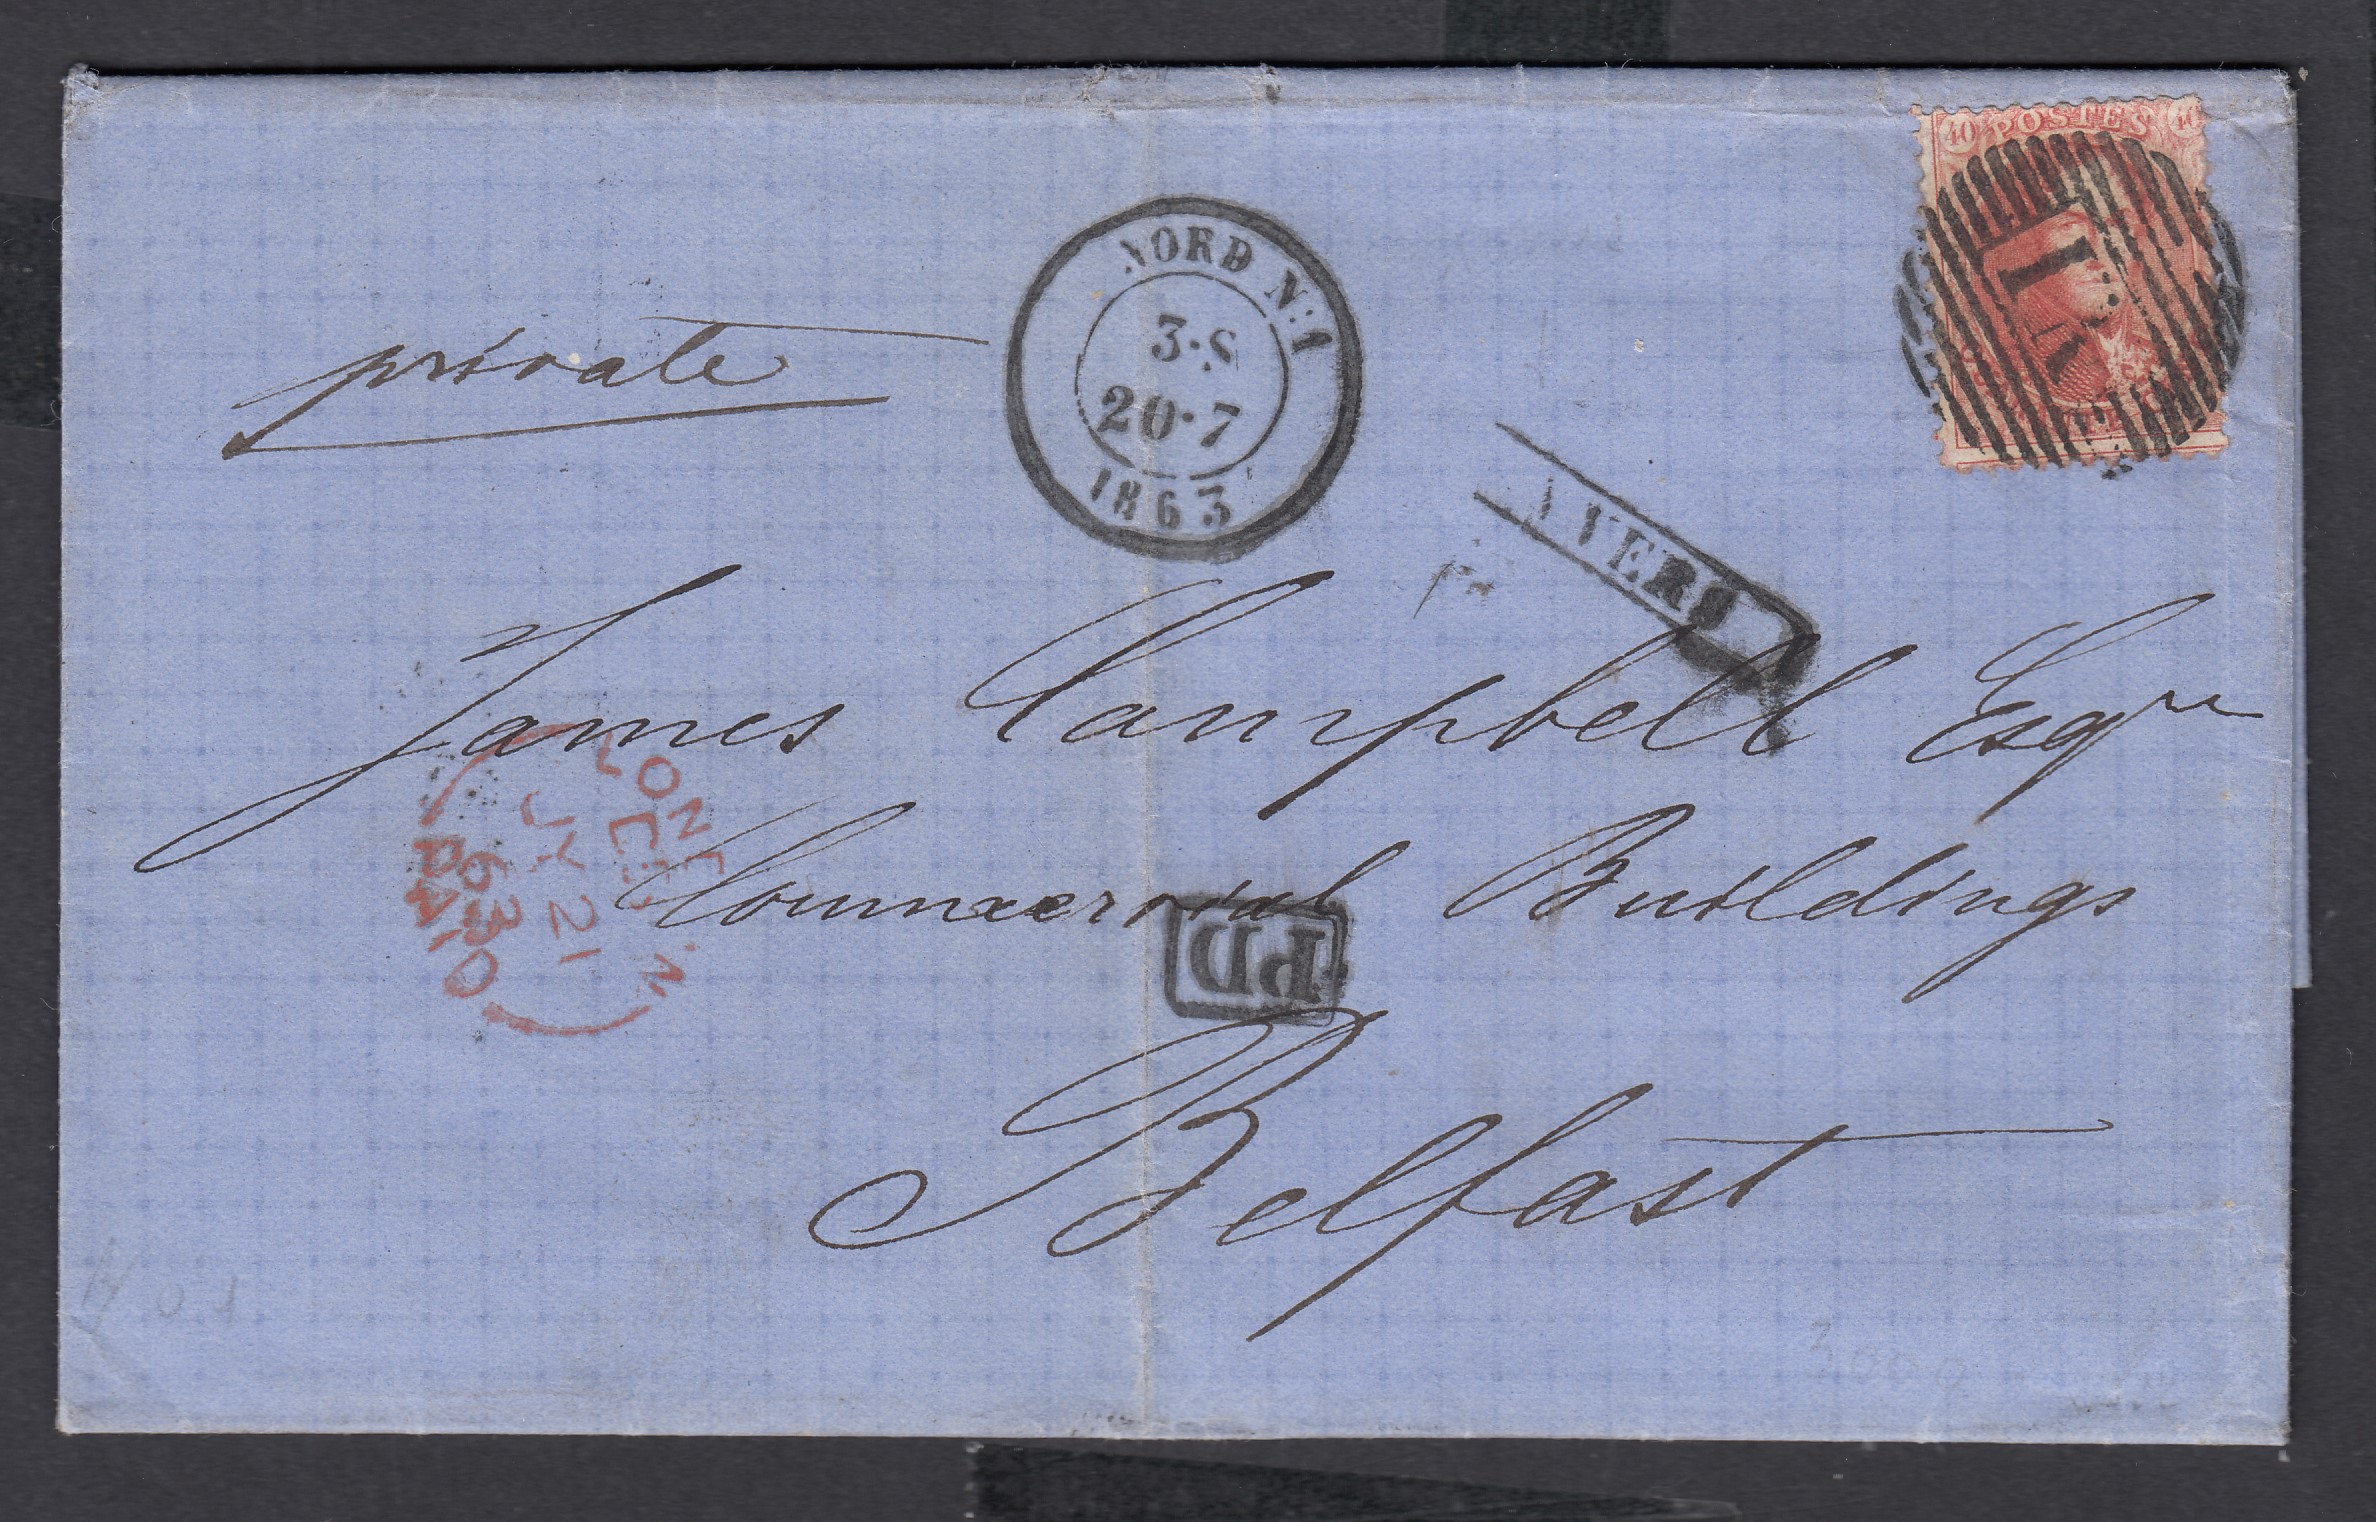 40 POSTES 40
NORD N:1
3·S
20·7
1863
private
James Campbell Esqre
Commercial Buildings
PD
Belfast
JY 21
63
PAID